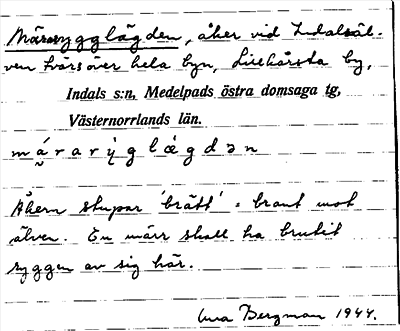 Märarygglägden, åker vid Indalsäl-
ven tvärs över hela byn, Lillhärsta by,
Indals s:n, Medelpads östra domsaga tg,
Västernorrlands län.
m á r a r y g l ǽ g d ə n
Åkern stupar 'brått' = brant mot
älven. En märr skall ha brutit
ryggen av sig här.
Bergman 1944.